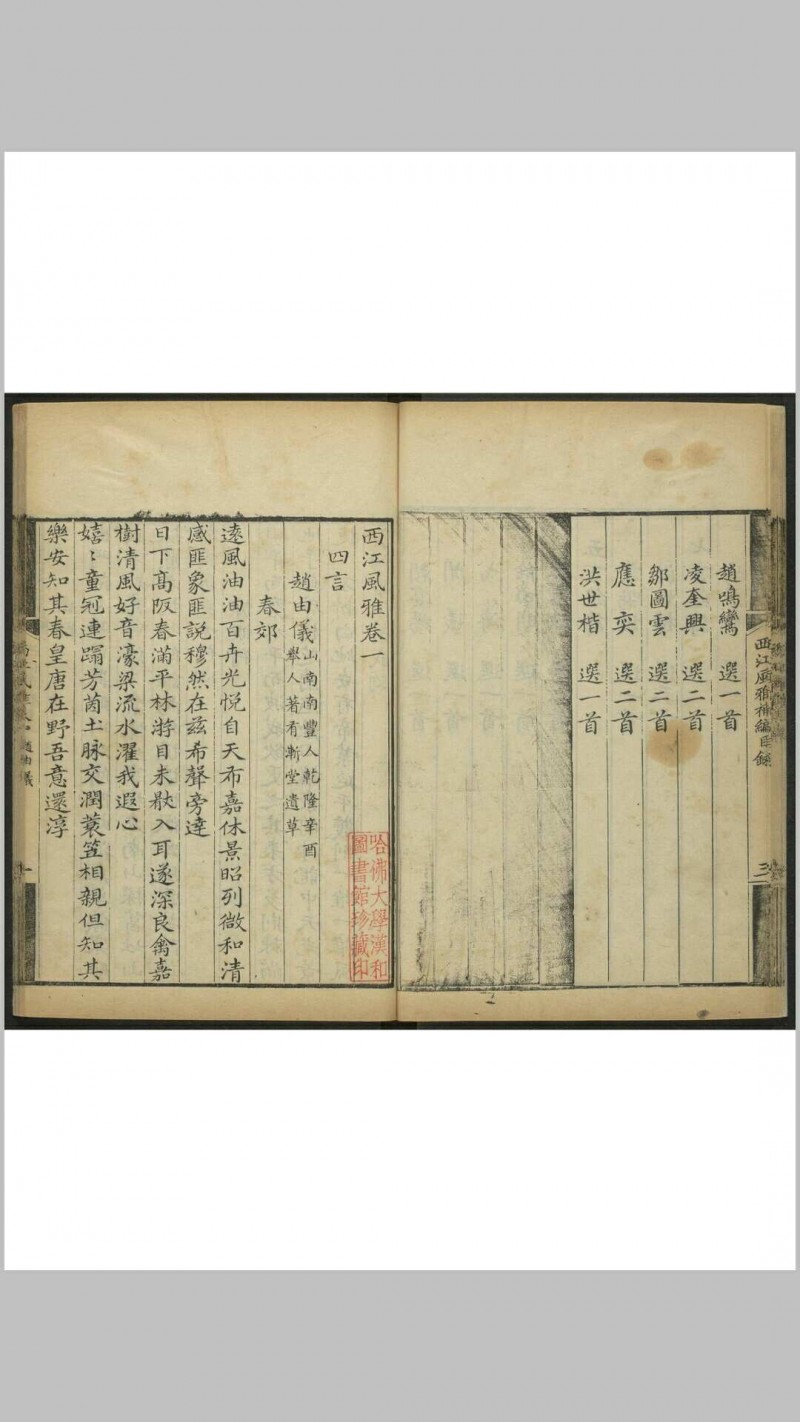 趙鳴鸞 選一首
凌奎興 選二首
鄒圖雲 選二首
應奕 選二首
洪世楷 選一首
西江風雅補編目錄
西江風雅卷一
四言
趙由儀
山南南豐人乾隆辛酉
舉人著有漸堂遺草
春郊
遠風油油百卉光悅自天布嘉休景昭列微和清
感匪象匪說穆然在兹希聲旁達
日下高阪春滿平林游目未歇入耳遂深良禽嘉
樹清風好音濠梁流水濯我遐心
嬉〻童冠連蹋芳茵土脉交潤蓑笠相親但知其
樂安知其春皇唐在野吾意還淳
哈佛大學漢和
圖書館珍藏印